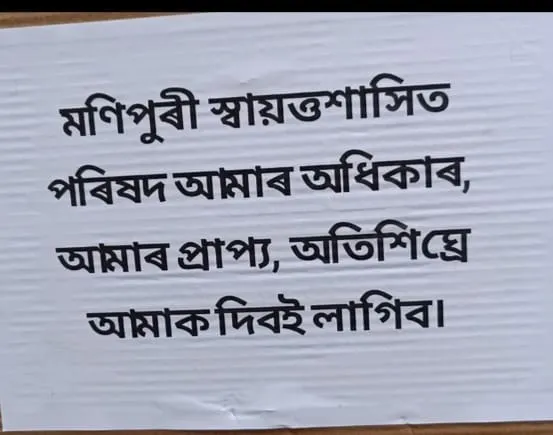 মণিপুৰী স্বায়ত্তশাসিত
পৰিষদ আমাৰ অধিকাৰ,
আমাৰ প্ৰাপ্য, অতিশিঘ্ৰে
আমাক দিবই লাগিব।